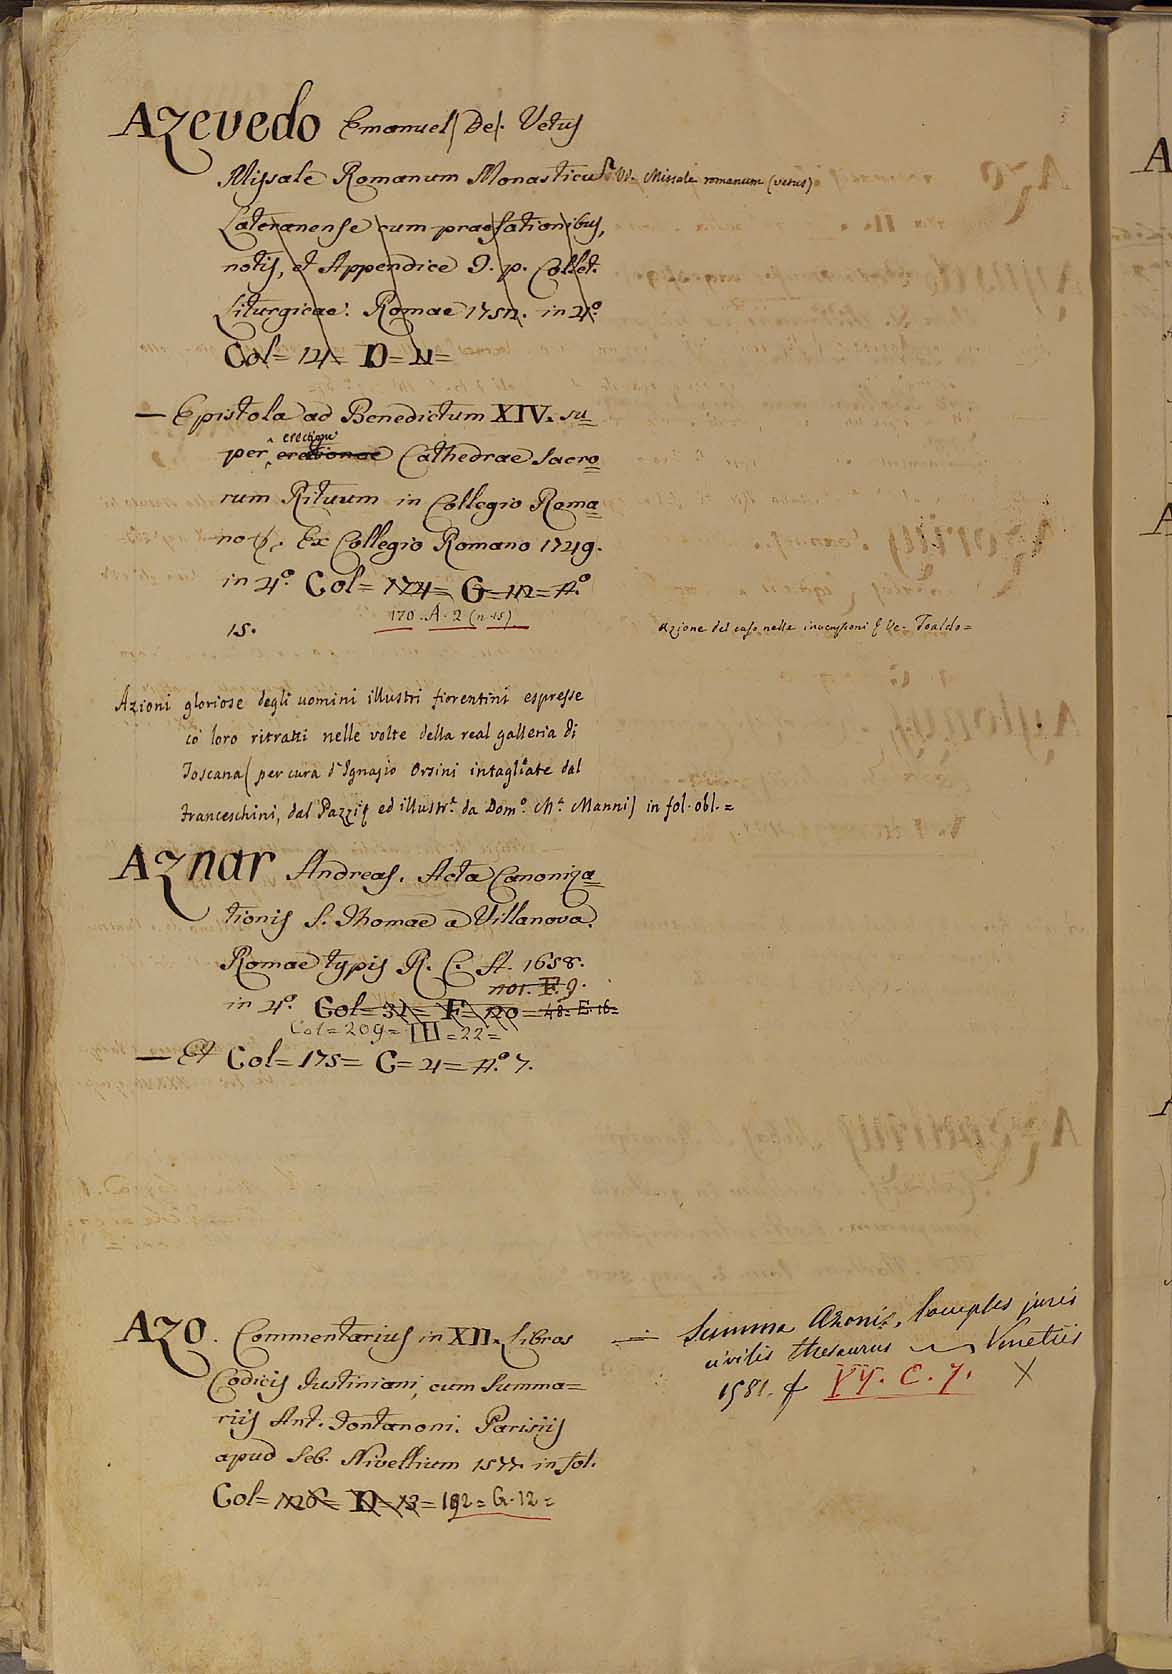 Azevedo Emanuel De. Vetus
Missale Romanum Monasticum V. Missale romanum (vetus)
Lateranense cum praefationibus,
notis, et Appendice J. p. Collet.
Liturgicae. Romae 1752. in 4º
Col= 124= D= 11=
— Epistola ad Benedictum XIV. su=
erectione
per Cathedrae Sacro=
rum Rituum in Collegio Roma=
no &. Ex Collegio Romano 1749.
in 4º. Col= 174= G= 12= Nº
170. A. 2 (n. 15)
15.
Azione del caso nelle invenzioni V. De- Toaldo=
Azioni gloriose degli uomini illustri fiorentini espresse
cò loro ritratti nelle volte della real galleria di
Toscana (per cura d'Ignazio Orsini intagliate dal
Franceschini, dal Pazzi & ed illustr.te da Dom.º M.a Manni) in fol. obl.=
Aznar Andreas. Acta Canoniza=
tionis S. Thomae a Villanova.
Romae typis R. C. A. 1658.
101. F. 9.
in 4º. Col= 31= F= 120= 48= E. 16=
Col=209= III=22=
— Et Col= 175= C= 4= Nº. 7.
Azo. Commentarius in XII. Libros
Codicis Justiniani, cum Summa=
riis Ant. Contanoni. Parisiis
apud Seb. Nivellium 1577. in fol.
Col= 128= D= 13= 192= G. 12=
— Summa Azonis, locuples juris
civilis thesaurus Venetiis
1581. f YY. C. 7. X